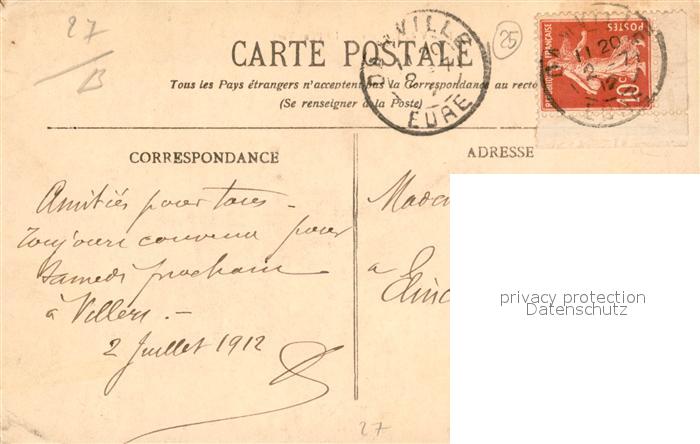 27
B
CARTE POSTALE
Tous les Pays étrangers n'acceptent pas la Correspondance au recto
(Se renseigner à la Poste)
DAMVILLE
EURE
25
POSTES
10
11 20
CORRESPONDANCE
ADRESSE
Amitiés pour tous -
Toujours convenu pour
Samedi prochain
à Villers. -
2 Juillet 1912
Mada
a
27
privacy protection
Datenschutz